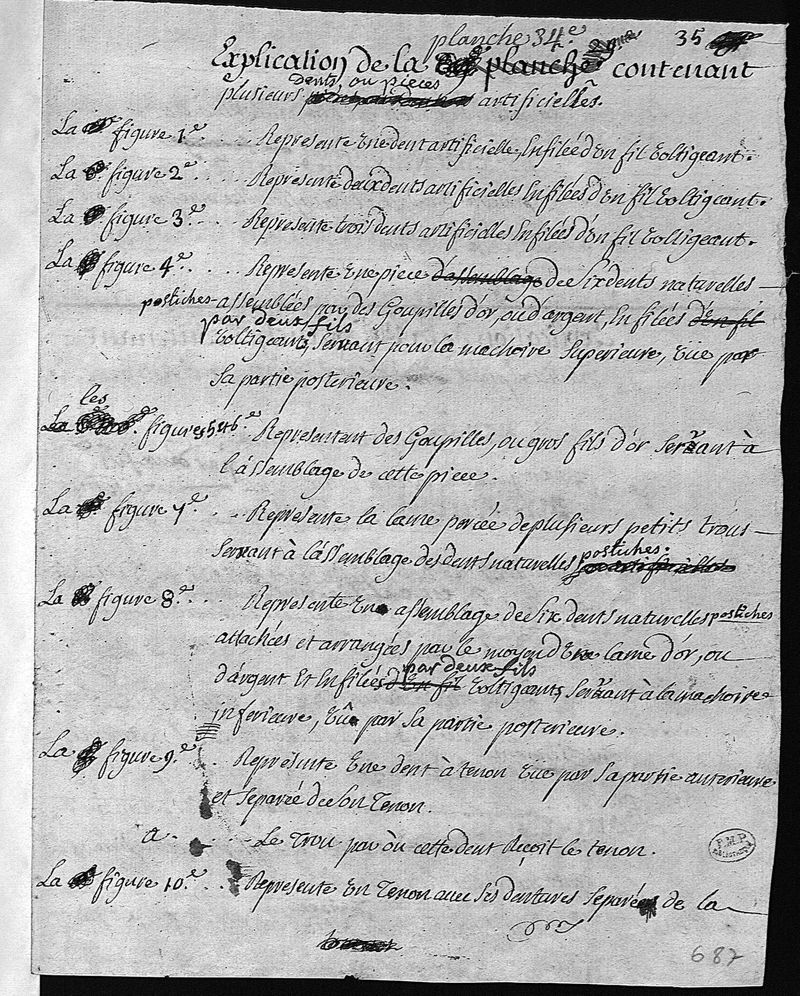 planche 34.e 35
Explication de la planche contenant
dents, ou pieces
plusieurs artificielles.
La figure 1.e Represente une dent artificielle enfilée d'un fil voltigeant.
La figure 2.e Represente deux dents artificielles enfilées d'un fil voltigeant.
La figure 3.e Represente trois dents artificielles enfilées d'un fil voltigeant.
La figure 4.e Represente une piece d'assemblage de six dents naturelles
postiches assemblées par des Goupilles d'or, ou d'argent, enfilées d'un fil
par deux fils
voltigeants, servant pour la machoire superieure, vüe par
sa partie posterieure.
les
La figures 5 et 6.e Representent des Goupilles, ou gros fils d'or servant à
l'assemblage de cette piece.
La figure 7.e Represente la lame percée de plusieurs petits trous
servant à l'assemblage des dents naturelles postiches.
La figure 8.e Represente un assemblage de six dents naturelles postiches
attachées et arrangées par le moyen d'une lame d'or, ou
par deux fils
d'argent et enfilées d'un fil voltigeants, servant à la machoire
inferieure, vû par sa partie posterieure.
La figure 9.e Represente une dent à tenon vüe par sa partie anterieure
et separée de son Tenon.
a. Le Trou par où cette dent reçoit le tenon.
La figure 10.e Represente un Tenon avec ses dentures separées de la
687